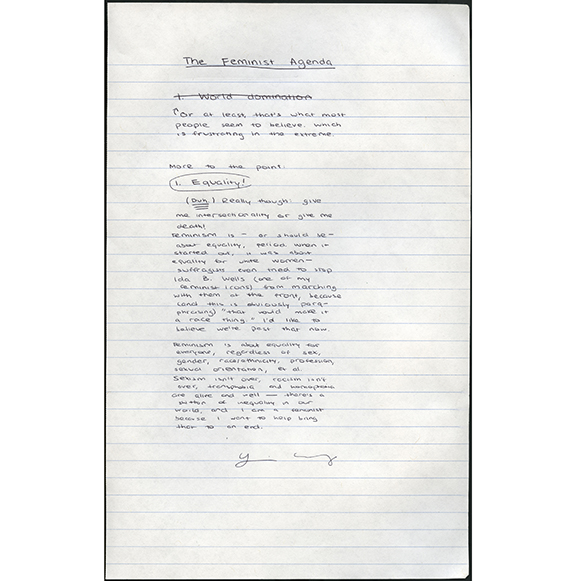 The Feminist Agenda
1. World domination
Or at least, that's what most
people seem to believe. Which
is frustrating in the extreme.
More to the point:
1. Equality!
(Duh.) Really though: give
me intersectionality or give me
death!
Feminism is - or should be -
about equality, period. When it
started out, it was about
equality for white women -
suffragists even tried to stop
Ida B. Wells (one of my
feminist icons) from marching
with them at the front, because
(and this is obviously para-
phrasing) "that would make it
a race thing." I'd like to
believe we're past that now.
Feminism is about equality for
everyone, regardless of sex,
gender, race/ethnicity, profession,
sexual orientation, et al.
Sexism isn't over, racism isn't
over, transphobia and homophobia
are alive and well - there's a
of inequality in our
world, and I am a feminist
because I want to help bring
that to an end.